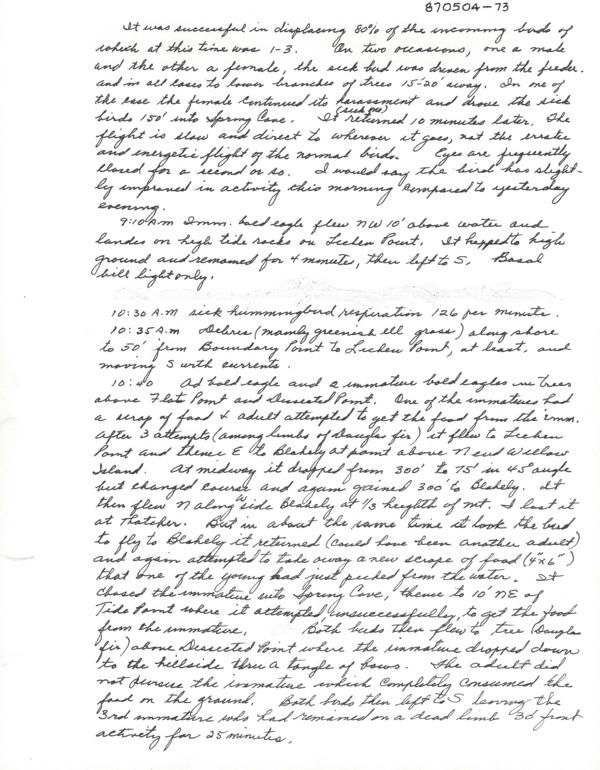 870504-73
It was successful in displacing 80% of the incoming birds of
which at this time was 1-3. On two occasions, one a male
and the other a female, the sick bird was driven from the feeder.
and in all cases to lower branches of trees 15-20' away. In one of
the case the female continued its harassment and drove the sick
birds 150' into Spring Cove. It (sick one) returned 10 minutes later. The
flight is slow and direct to wherever it goes, not the erratic
and energetic flight of the normal birds. Eyes are frequently
closed for a second or so. I would say the bird has slight-
ly improved in activity this morning compared to yesterday
evening.
9:10 Am Imm. bald eagle flew NW 10' above water and
landes on high tide rocks on Lichen Point. It hopped to high
ground and remained for 4 minutes, then left to S. Basal
bill light only.
10:30 A.M sick hummingbird respiration 126 per minute.
10:35 A.m Debres (mainly greenish eel grass) along shore
to 50' from Boundary Point to Lichen Point, at least, and
moving S with currents.
10:40 Ad bald eagle and 2 immature bald eagles in trees
above Flat Point and Dissected Point. One of the immatures had
a scrap of food & adult attempted to get the food from the imm.
After 3 attempts (among limbs of Douglas fir) it flew to Lichen
Point and thence E to Blakely at point above N end Willow
Island. At midway it dropped from 300' to 75' in 45° angle
but changed course and again gained 300' to Blakely. It
then flew N along W side Blakely at 1/3 heighth of mt. I lost it
at Thatcher. But in about the same time it took the bird
to fly to Blakely it returned (could have been another adult)
and again attempted to take away a new scrape of food (4"x6")
that one of the young had just pecked from the water. It
chased the immature into Spring Cove, thence to 10' NE of
Tide Point where it attempted unsuccessfully to get the food
from the immature. Both birds then flew to tree (Douglas
fir) above Dissected Point where the immature dropped down
to the hillside thru a tangle of bows. The adult did
not pursue the immature which completely consumed the
food on the ground. Both birds then left to S leaving the
3rd immature who had remained on a dead limb 30' from
activity for 25 minutes.